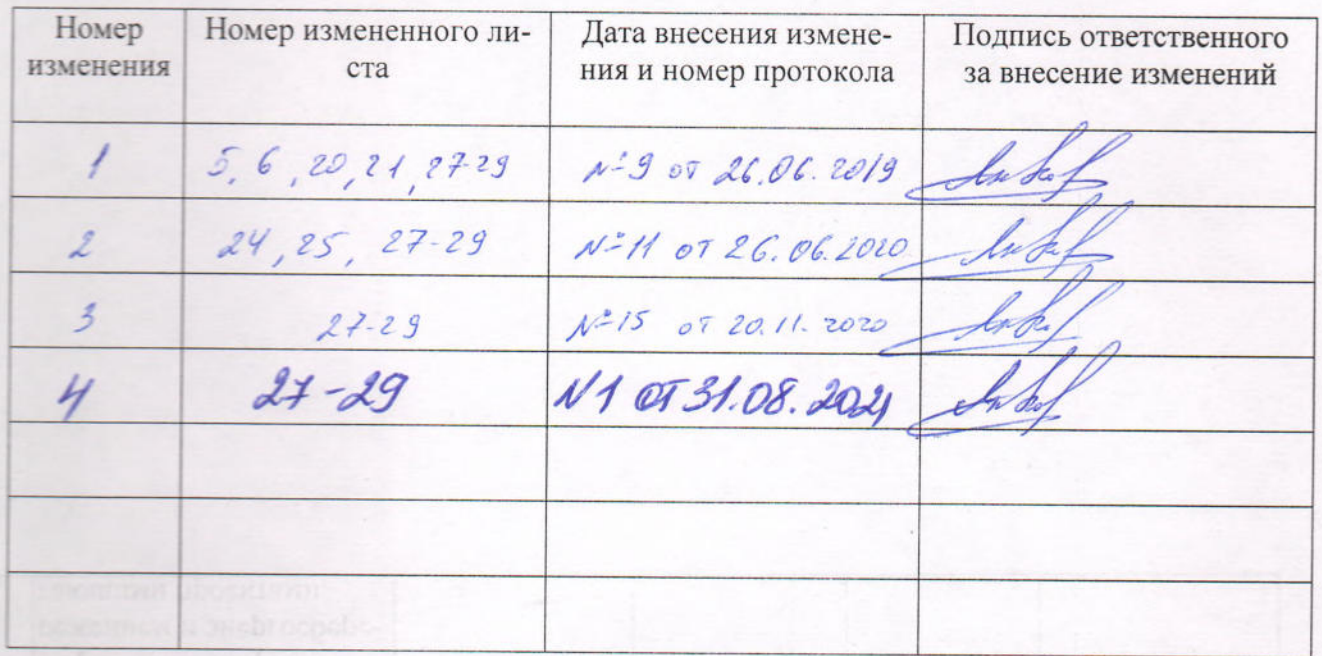 Номер изменения
Номер измененного ли-
ста
Дата внесения измене-
ния и номер протокола
Подпись ответственного
за внесение изменений
1 5, 6, 20, 21, 27-29 №9 от 26.06.2019
2 24, 25, 27-29 №11 от 26.06.2020
3 27-29 №15 от 20.11.2020
4 27-29 N1 от 31.08.2021